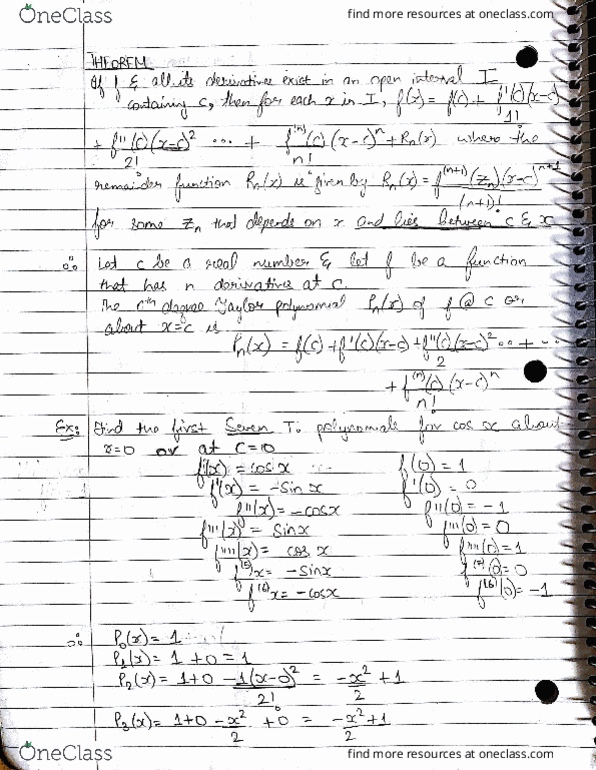 OneClass
find more resources at oneclass.com
THEOREM
If f & all its derivatives exist in an open interval I
containing c, then for each x in I, f(x) = f(c) + f'(c)(x-c)/1!
+ f''(c)(x-c)²/2! ... + f⁽ⁿ⁾(c)(x-c)ⁿ/n! + Rn(x) where the
remainder function Rn(x) is given by Rn(x) = f⁽ⁿ⁺¹⁾(zn)(x-c)ⁿ⁺¹/(n+1)!
for some zn that depends on x and lies between c & x
∴ Let c be a real number & let f be a function
that has n derivatives at c.
The nth degree Taylor polynomial Pn(x) of f @ c or
about x=c is
Pn(x) = f(c) + f'(c)(x-c) + f''(c)(x-c)²/2 ... + ...
+ f⁽ⁿ⁾(c)(x-c)ⁿ/n!
Ex: Find the first Seven T. polynomials for cos x about
x=0 or at C=0
f(x) = cos x f(0) = 1
f'(x) = -sin x f'(0) = 0
f''(x) = -cosx f''(0) = -1
f'''(x) = Sinx f'''(0) = 0
f''''(x) = cos x f''''(0) = 1
f⁽⁵⁾x = -Sinx (0) = 0
f⁽⁶⁾x = -cosx f⁽⁶⁾(0) = -1
∴ P₀(x) = 1
P₁(x) = 1 + 0 = 1
P₂(x) = 1+0 -1(x-0)²/2! = -x²/2 + 1
P₃(x) = 1+0 -x²/2 + 0 = -x²/2 + 1
OneClass
find more resources at oneclass.com